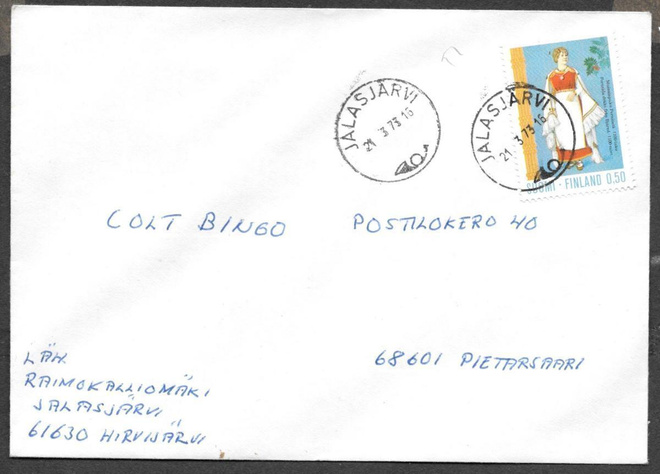 JALASJÄRVI
21. 3.73 16
JALASJÄRVI
21. 3.73 16
SUOMI · FINLAND 0,50
COLT BINGO POSTILOKERO 40
68601 PIETARSAARI
LÄH.
RAIMOKALLIOMÄKI
JALASJÄRVI
61630 HIRVIJÄRVI